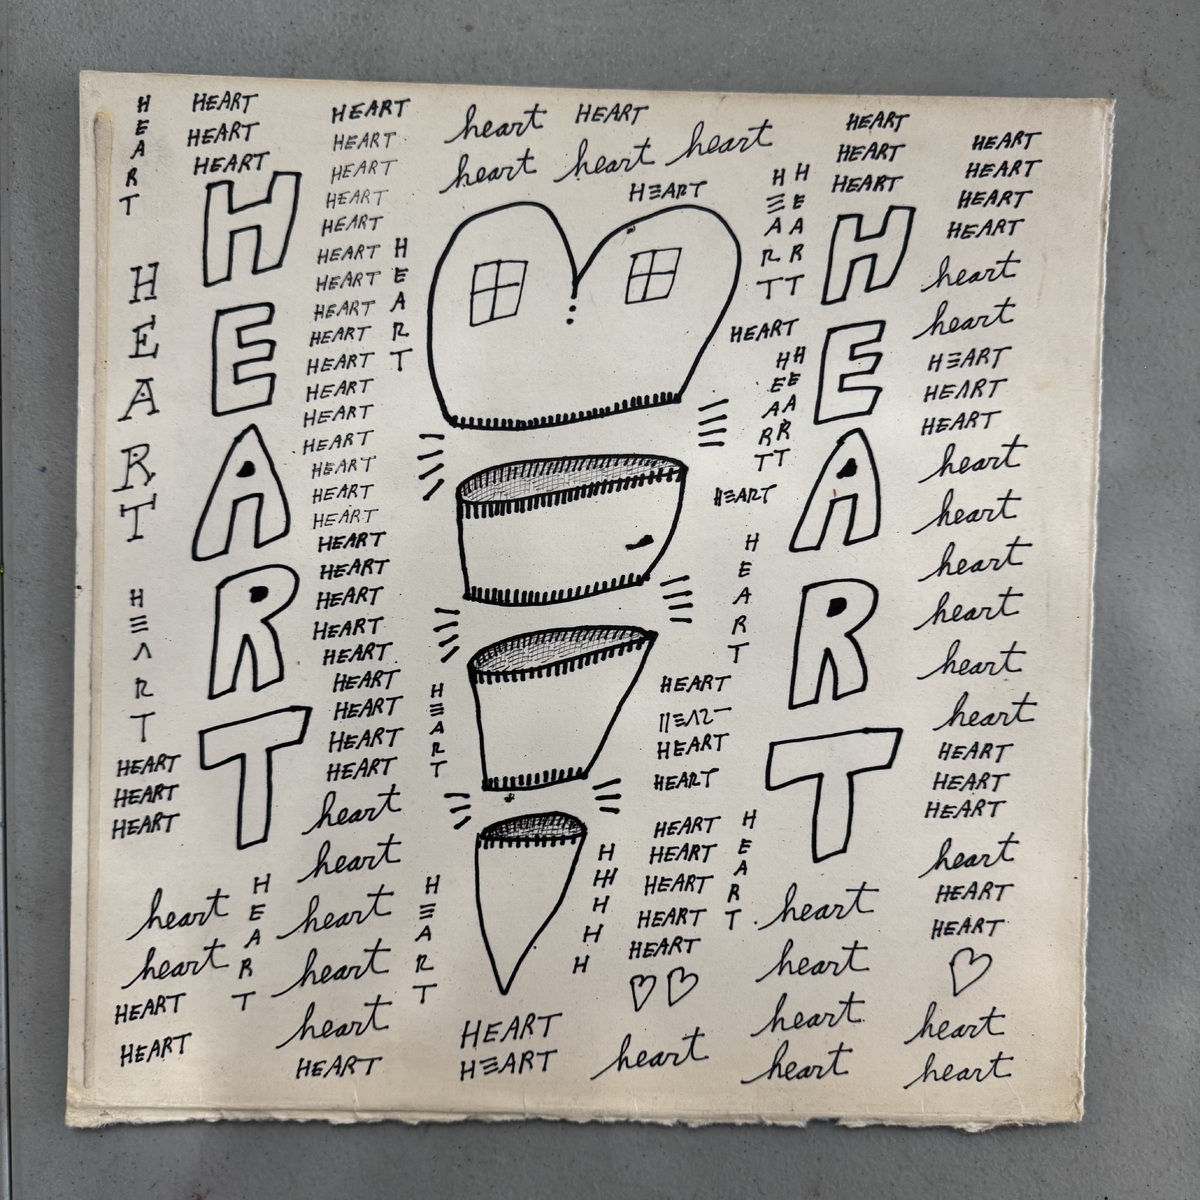 HEART
HEART
HEART
HEART
HEART
HEART
heart
heart
HEART
HEART
HEART
HEART
HEART
HEART
HEART
HEART
HEART
HEART
HEART
HEART
HEART
HEART
HEART
HEART
HEART
HEART
HEART
HEART
HEART
HEART
HEART
HEART
HEART
HEART
HEART
HEART
HEART
HEART
HEART
HEART
heart
heart
heart
heart
heart
HEART
HEART
HEART
HEART
heart HEART
heart heart heart
HEART
HEART
HEART
H
HH
H
H
H
HEART
HEART
HEART
HEART
HEART
HEART
HEART
HEART
HEART
HEART
HEART
HEART
HEART
HEART
HEART
HEART
heart
HEART
HEART
HEART
HEART
HEART
heart
heart
heart
heart
HEART
HEART
HEART
HEART
heart
heart
HEART
HEART
HEART
heart
heart
heart
heart
heart
heart
HEART
HEART
HEART
heart
HEART
HEART
heart
heart